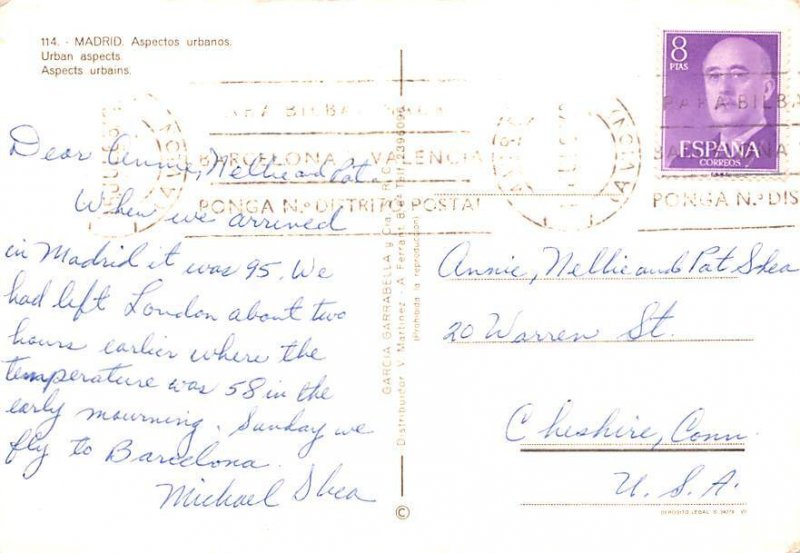 114. - MADRID. Aspectos urbanos.
Urban aspects.
Aspects urbains.
Dear Annie, Nellie and Pat.
When we arrived
in Madrid it was 95. We
had left London about two
hours earlier where the
temperature was 58 in the
early mourning. Sunday we
fly to Barcelona.
Michael Shea
GARCIA GARRABELLA y Cia.
Distribuidor V. Martinez - A. Ferrant,
(Prohibida la reproducción)
©
8
PTAS
ESPAÑA
CORREOS
PARA BILBAO
BARCELONA VALENCIA
PONGA N.º DISTRITO POSTAL
PARA BILBA
PONGA N.º DIS
Annie, Nellie and Pat Shea
20 Warren St.
Cheshire, Conn.
U.S.A.
DEPOSITO LEGAL B.